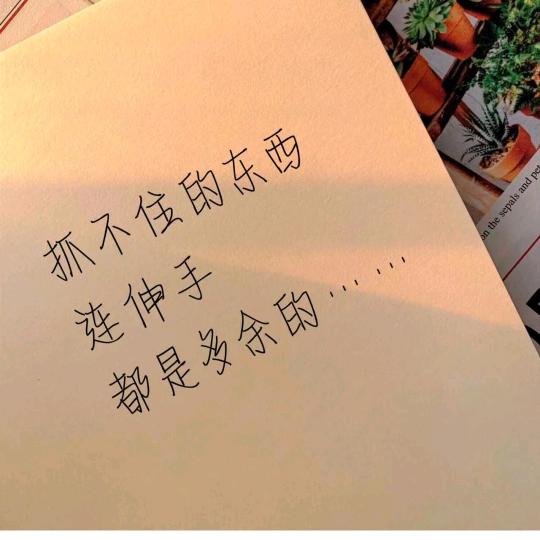 抓不住的东西
连伸手
都是多余的……
on the sepals and pet